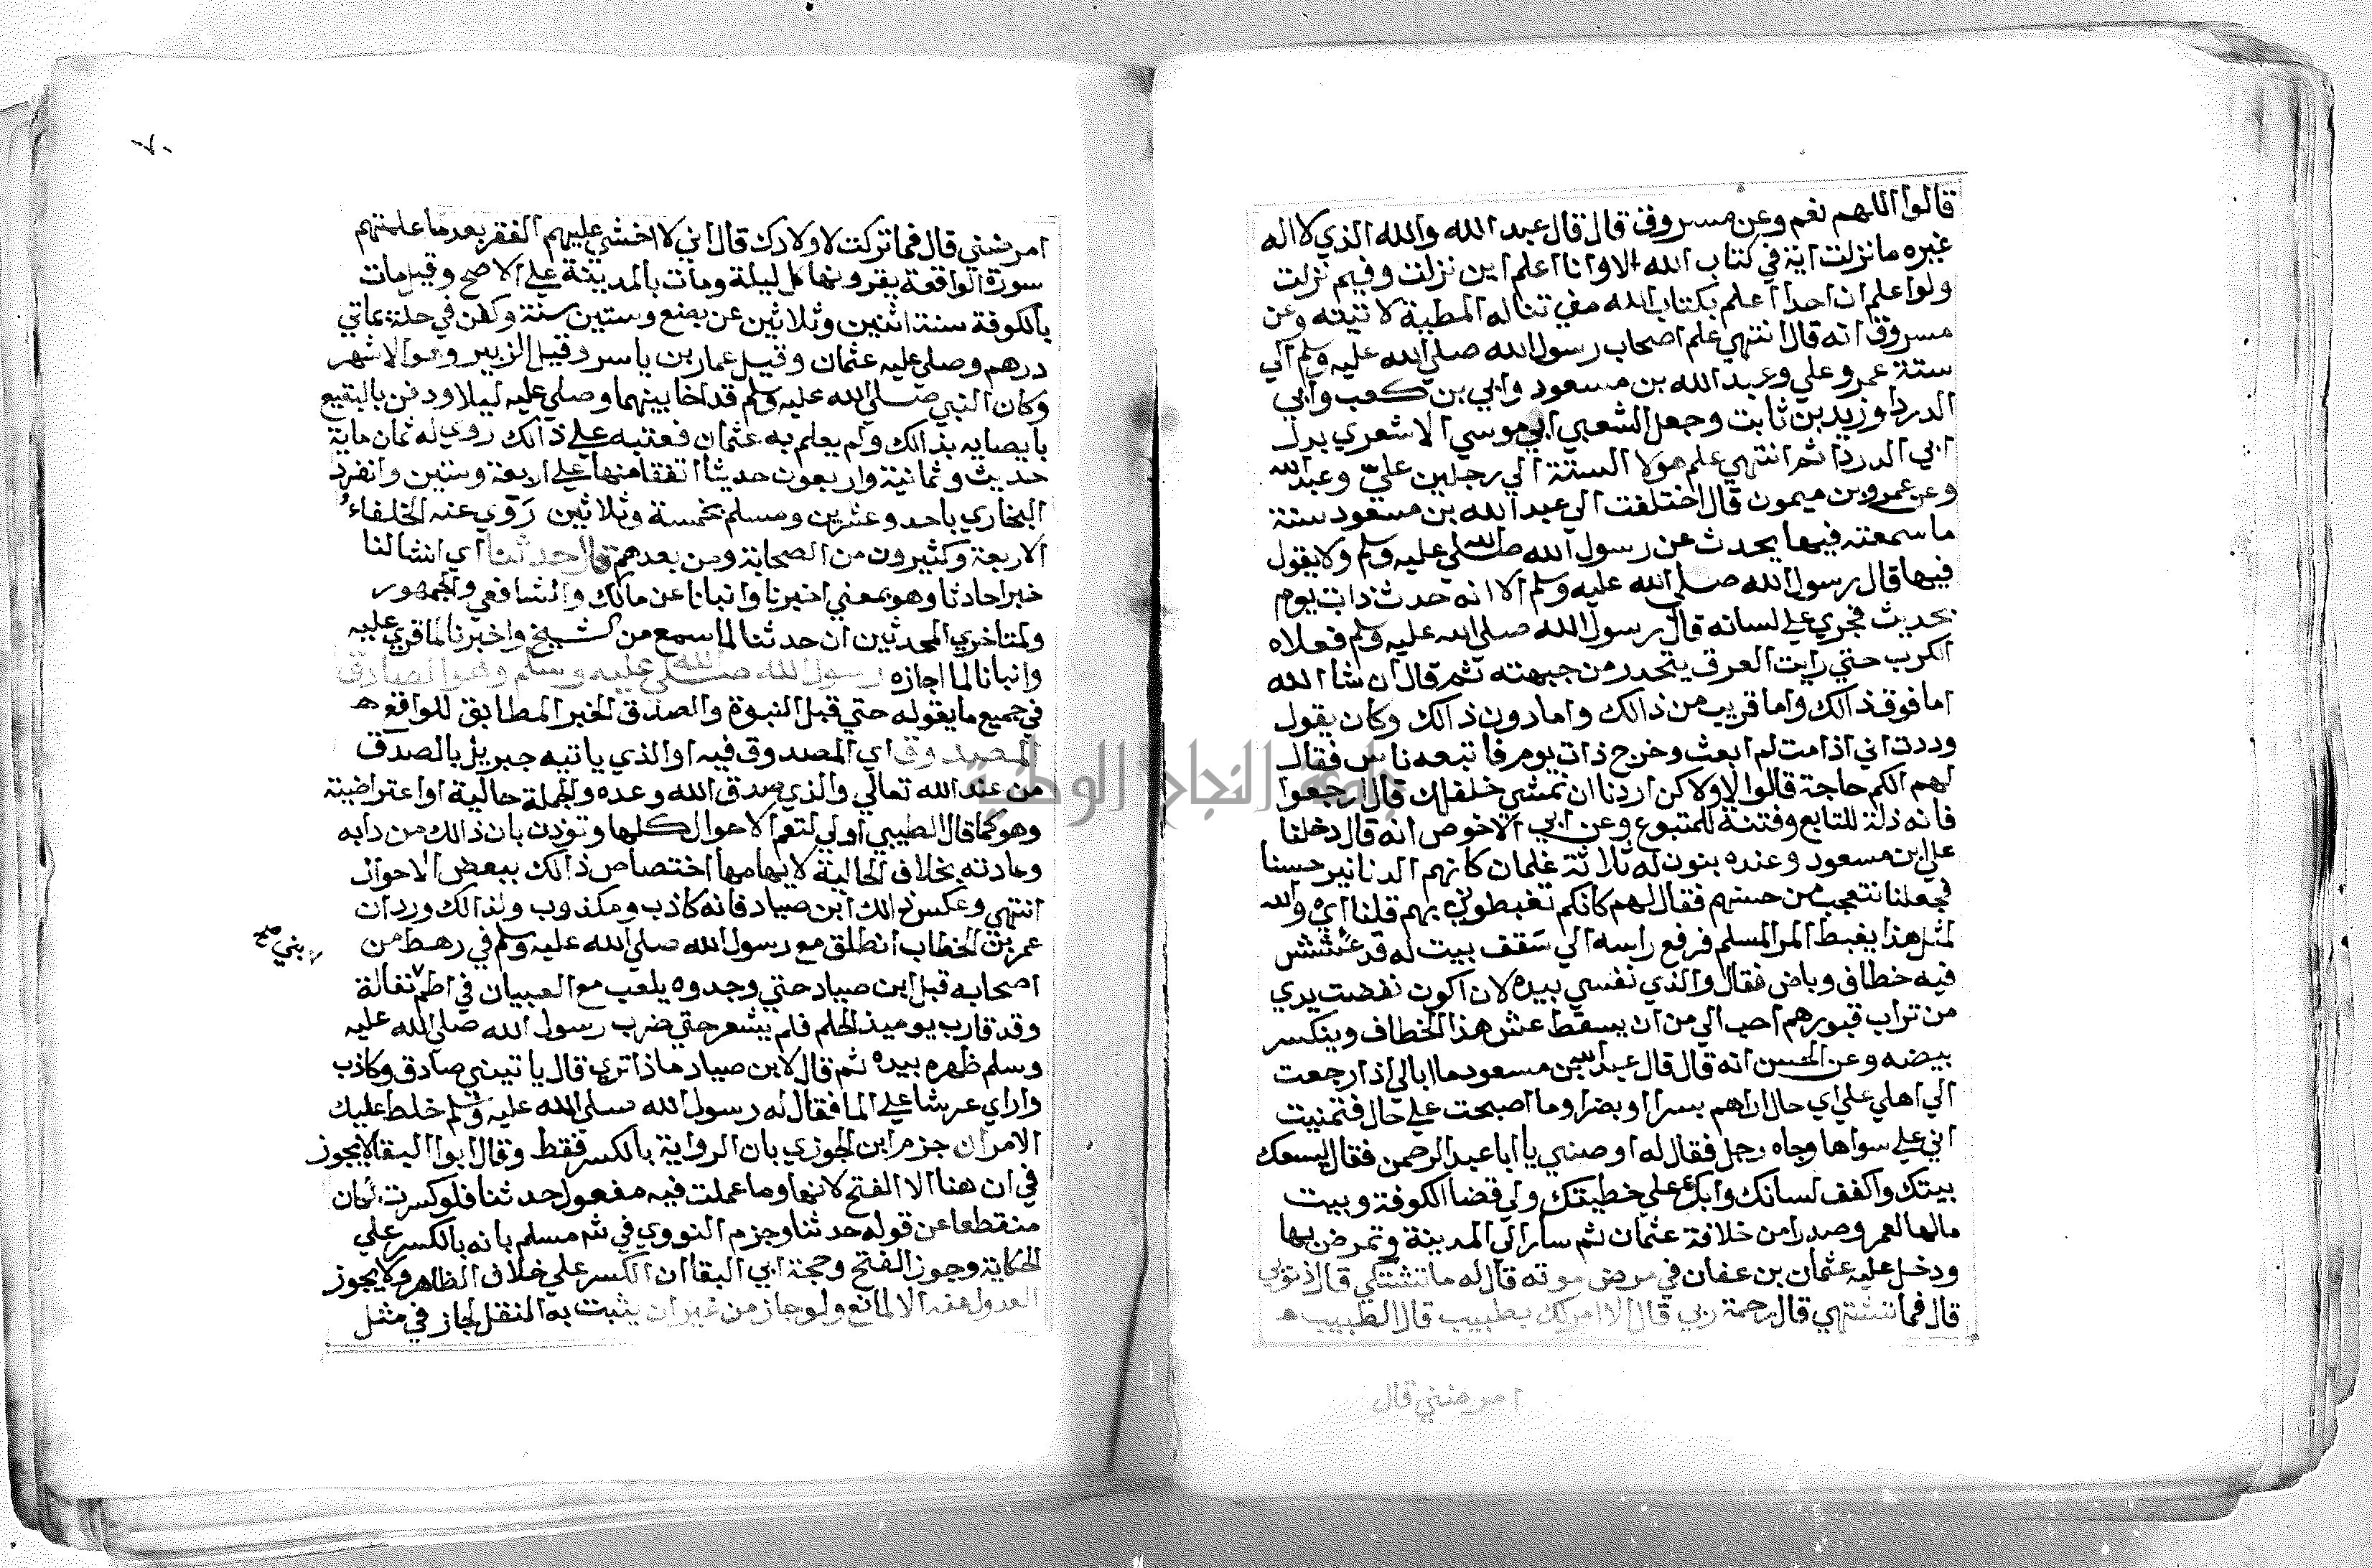 قالوا اللهم نعم وعن مسروق قال قال عبد الله والله الذي لا اله
غيره ما نزلت اية في كتاب الله الا وانا اعلم اين نزلت وفيم نزلت
ولو اعلم ان احدا اعلم بكتاب الله مني تناله المطية لاتيته وعن
مسروق انه قال انتهي علم اصحاب رسول الله صلي الله عليه وسلم الي
ستة عمر وعلي وعبد الله بن مسعود وابي بن كعب وابي
الدردا وزيد بن ثابت وجعل الشعبي ابي موسي الاشعري بدل
ابي الدردا ثم انتهي علم هولا الستة الي رجلين علي وعبد الله
وعن عمرو بن ميمون قال اختلفت الي عبد الله بن مسعود سنة
ما سمعته فيها يحدث عن رسول الله صلي الله عليه وسلم ولا يقول
فيها قال رسول الله صلي الله عليه وسلم الا انه حدث ذات يوم
بحديث فجري علي لسانه قال رسول الله صلي الله عليه وسلم فعلاه
الكرب حتي رايت العرق يتحدر من جبهته ثم قال ان شا الله
اما فوق ذالك واما قريب من ذالك واما دون ذالك وكان يقول
وددت اني اذا مت لم ابعث وخرج ذات يوم فاتبعه ناس فقال
لهم الكم حاجة قالوا لا ولاكن اردنا ان نمشي خلفك قال ارجعوا
فانه ذلة للتابع وفتنة للمتبوع وعن ابي الاخوص انه قال دخلنا
علي ابن مسعود وعنده بنون له ثلاثة غلمان كانهم الدنانير حسنا
فجعلنا نتعجب من حسنهم فقال لهم كانكم تغبطوني بهم قلنا اي والله
لمثل هذا يغبط المر المسلم فرفع راسه الي سقف بيت له قد عشش
فيه خطاف وباض فقال والذي نفسي بيده لان اكون نفضت يدي
من تراب قبورهم احب الي من ان يسقط عش هذا الخطاف وينكسر
بيضه وعن الحسن انه قال قال عبد الله بن مسعود ما ابالي اذا رجعت
الي اهلي علي اي حال اراهم بسرا او بضرا وما اصبحت علي حال فتمنيت
اني علي سواها وجاه رجل فقال له اوصني يا ابا عبد الرحمن فقال ليسعك
بيتك واكفف لسانك وابك علي خطيتك ولي قضا الكوفة وبيت
مالها لعمر وصدرا من خلافة عثمان ثم سار الي المدينة وتمرض بها
ودخل عليه عثمان بن عفان في مرض موته قال له ما تشتكي قال ذنوبي
قال فما تشتهي قال رحمة ربي قال الا امر لك بطبيب قال الطبيب
امرضني قال
٧٠
امرضني قال فما تركت لاولادك قال اني لا اخشي عليهم الفقر بعد ما علمتهم
سورة الواقعة يقرونها كل ليلة ومات بالمدينة علي الاصح وقيل مات
بالكوفة سنة اثنين وثلاثين عن بضع وستين سنة وكفن في حلة بماتي
درهم وصلي عليه عثمان وقيل عمار بن ياسر وقيل الزبير وهو الاشهر
وكان النبي صلي الله عليه وسلم قد اخا بينهما وصلي عليه ليلا ودفن بالبقيع
بايصايه بذالك ولم يعلم به عثمان فعتبه علي ذالك روي له ثمان ماية
حديث وثمانية واربعون حديثا اتفقا منها علي اربعة وستين وانفرد
البخاري باحد وعشرين ومسلم بخمسة وثلاثين روي عنه الخلفاء
الاربعة وكثيرون من الصحابة ومن بعدهم قال حدثنا اي انشا لنا
خبرا حادثا وهو بمعني اخبرنا وانبانا عن مالك والشافعي والجمهور
ولمتاخري المحدثين ان حدثنا لما سمع من الشيخ واخبرنا لما قري عليه
وانبانا لما اجازه رسول الله صلي الله عليه وسلم وهو الصادق
في جميع ما يقوله حتي قبل النبوة والصدق الخبر المطابق للواقع
المصدوق اي المصدوق فيه او الذي ياتيه جبريل بالصدق
من عند الله تعالي والذي صدق الله وعده والجملة حالية او اعتراضية
وهو كما قال الطيبي اولي لتعم الاحوال كلها وتؤذن بان ذالك من دابه
وعادته بخلاف الحالية لايهامها اختصاص ذالك ببعض الاحوال
انتهي وعكس ذالك ابن صياد فانه كاذب ومكذوب ولذالك ورد ان
عمر بن الخطاب انطلق مع رسول الله صلي الله عليه وسلم في رهط من
اصحابه قبل ابن صياد حتي وجدوه يلعب مع الصبيان في اطم نغالة
بني صح
وقد قارب يوميذ الحلم فلم يشعر حتي ضرب رسول الله صلي الله عليه
وسلم ظهره بيده ثم قال لابن صياد ماذا تري قال ياتيني صادق وكاذب
واراي عرشا علي الما فقال له رسول الله صلي الله عليه وسلم خلط عليك
الامر ان جزم ابن الجوزي بان الرواية بالكسر فقط وقال ابوا البقا لا يجوز
في ان هنا الا الفتح لانها وما عملت فيه مفعول حدثنا فلو كسرت لكان
منقطعا عن قوله حدثنا وجزم النووي في شم مسلم بانه بالكسر علي
الحكاية وجوز الفتح وحجة ابي البقا ان الكسر علي خلاف الظاهر ولا يجوز
العدول عنه الا لمانع ولو جاز من غير ان يثبت به النقل لجاز في مثل
جامعة النجاح الوطنية